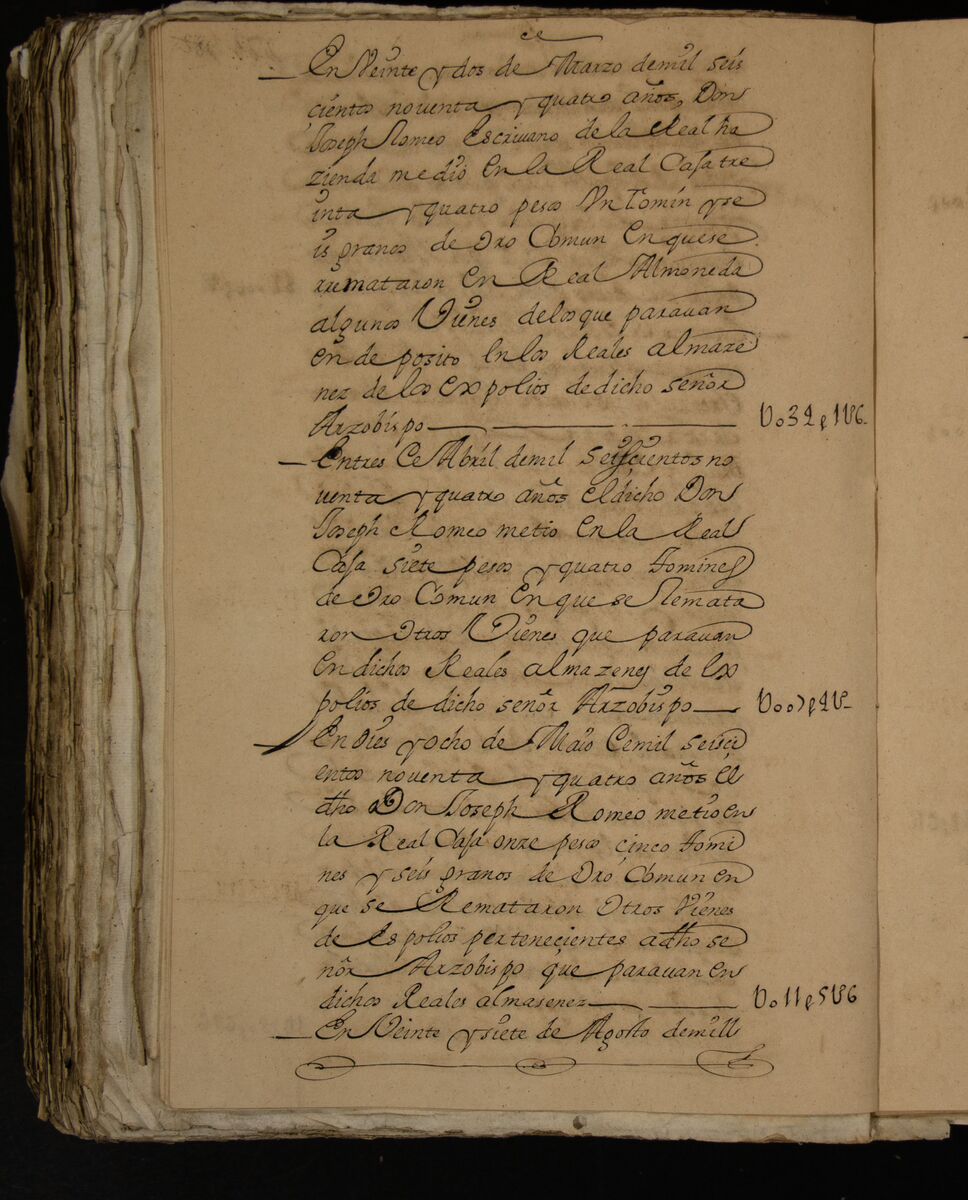 ce
En Veinte y dos de Marzo demil seis
cientos noventa y quatro años, Don
Joseph Romeo Escriuano de la Real ha
zienda medio en la Real Casa tre
inta y quatro pesos Vn Tomin y se
is granos de Oro Comun en que se
rrematàron en Real Almoneda
algunos Vienes delos que parauan
en de posito en los Reales almaze
nez de los expolios de dicho señor
Arzobispo
En tres de Abril demil Seiscientos no
uenta y quatro años el dicho Don
Joseph Romeo metio en la Real
Casa siete pesos y quatro tomines
de Oro Comun en que se Remata
ron Otros Vienes que parauan
en dichos Reales almazenes de ex
polios de dicho señor Arzobispo
En dies y ocho de Maio demil seisci
entos noventa y quatro años el
dho Don Joseph Romeo metio en
la Real Casa onze pesos cinco tomi
nes y seis granos de Oro Comun en
que se Remataron Otros Vienes
de Espolios pertenecientes a dho se
ñor Arzobispo que parauan en
dichos Reales almasenez
En Veinte y siete de Agosto demill